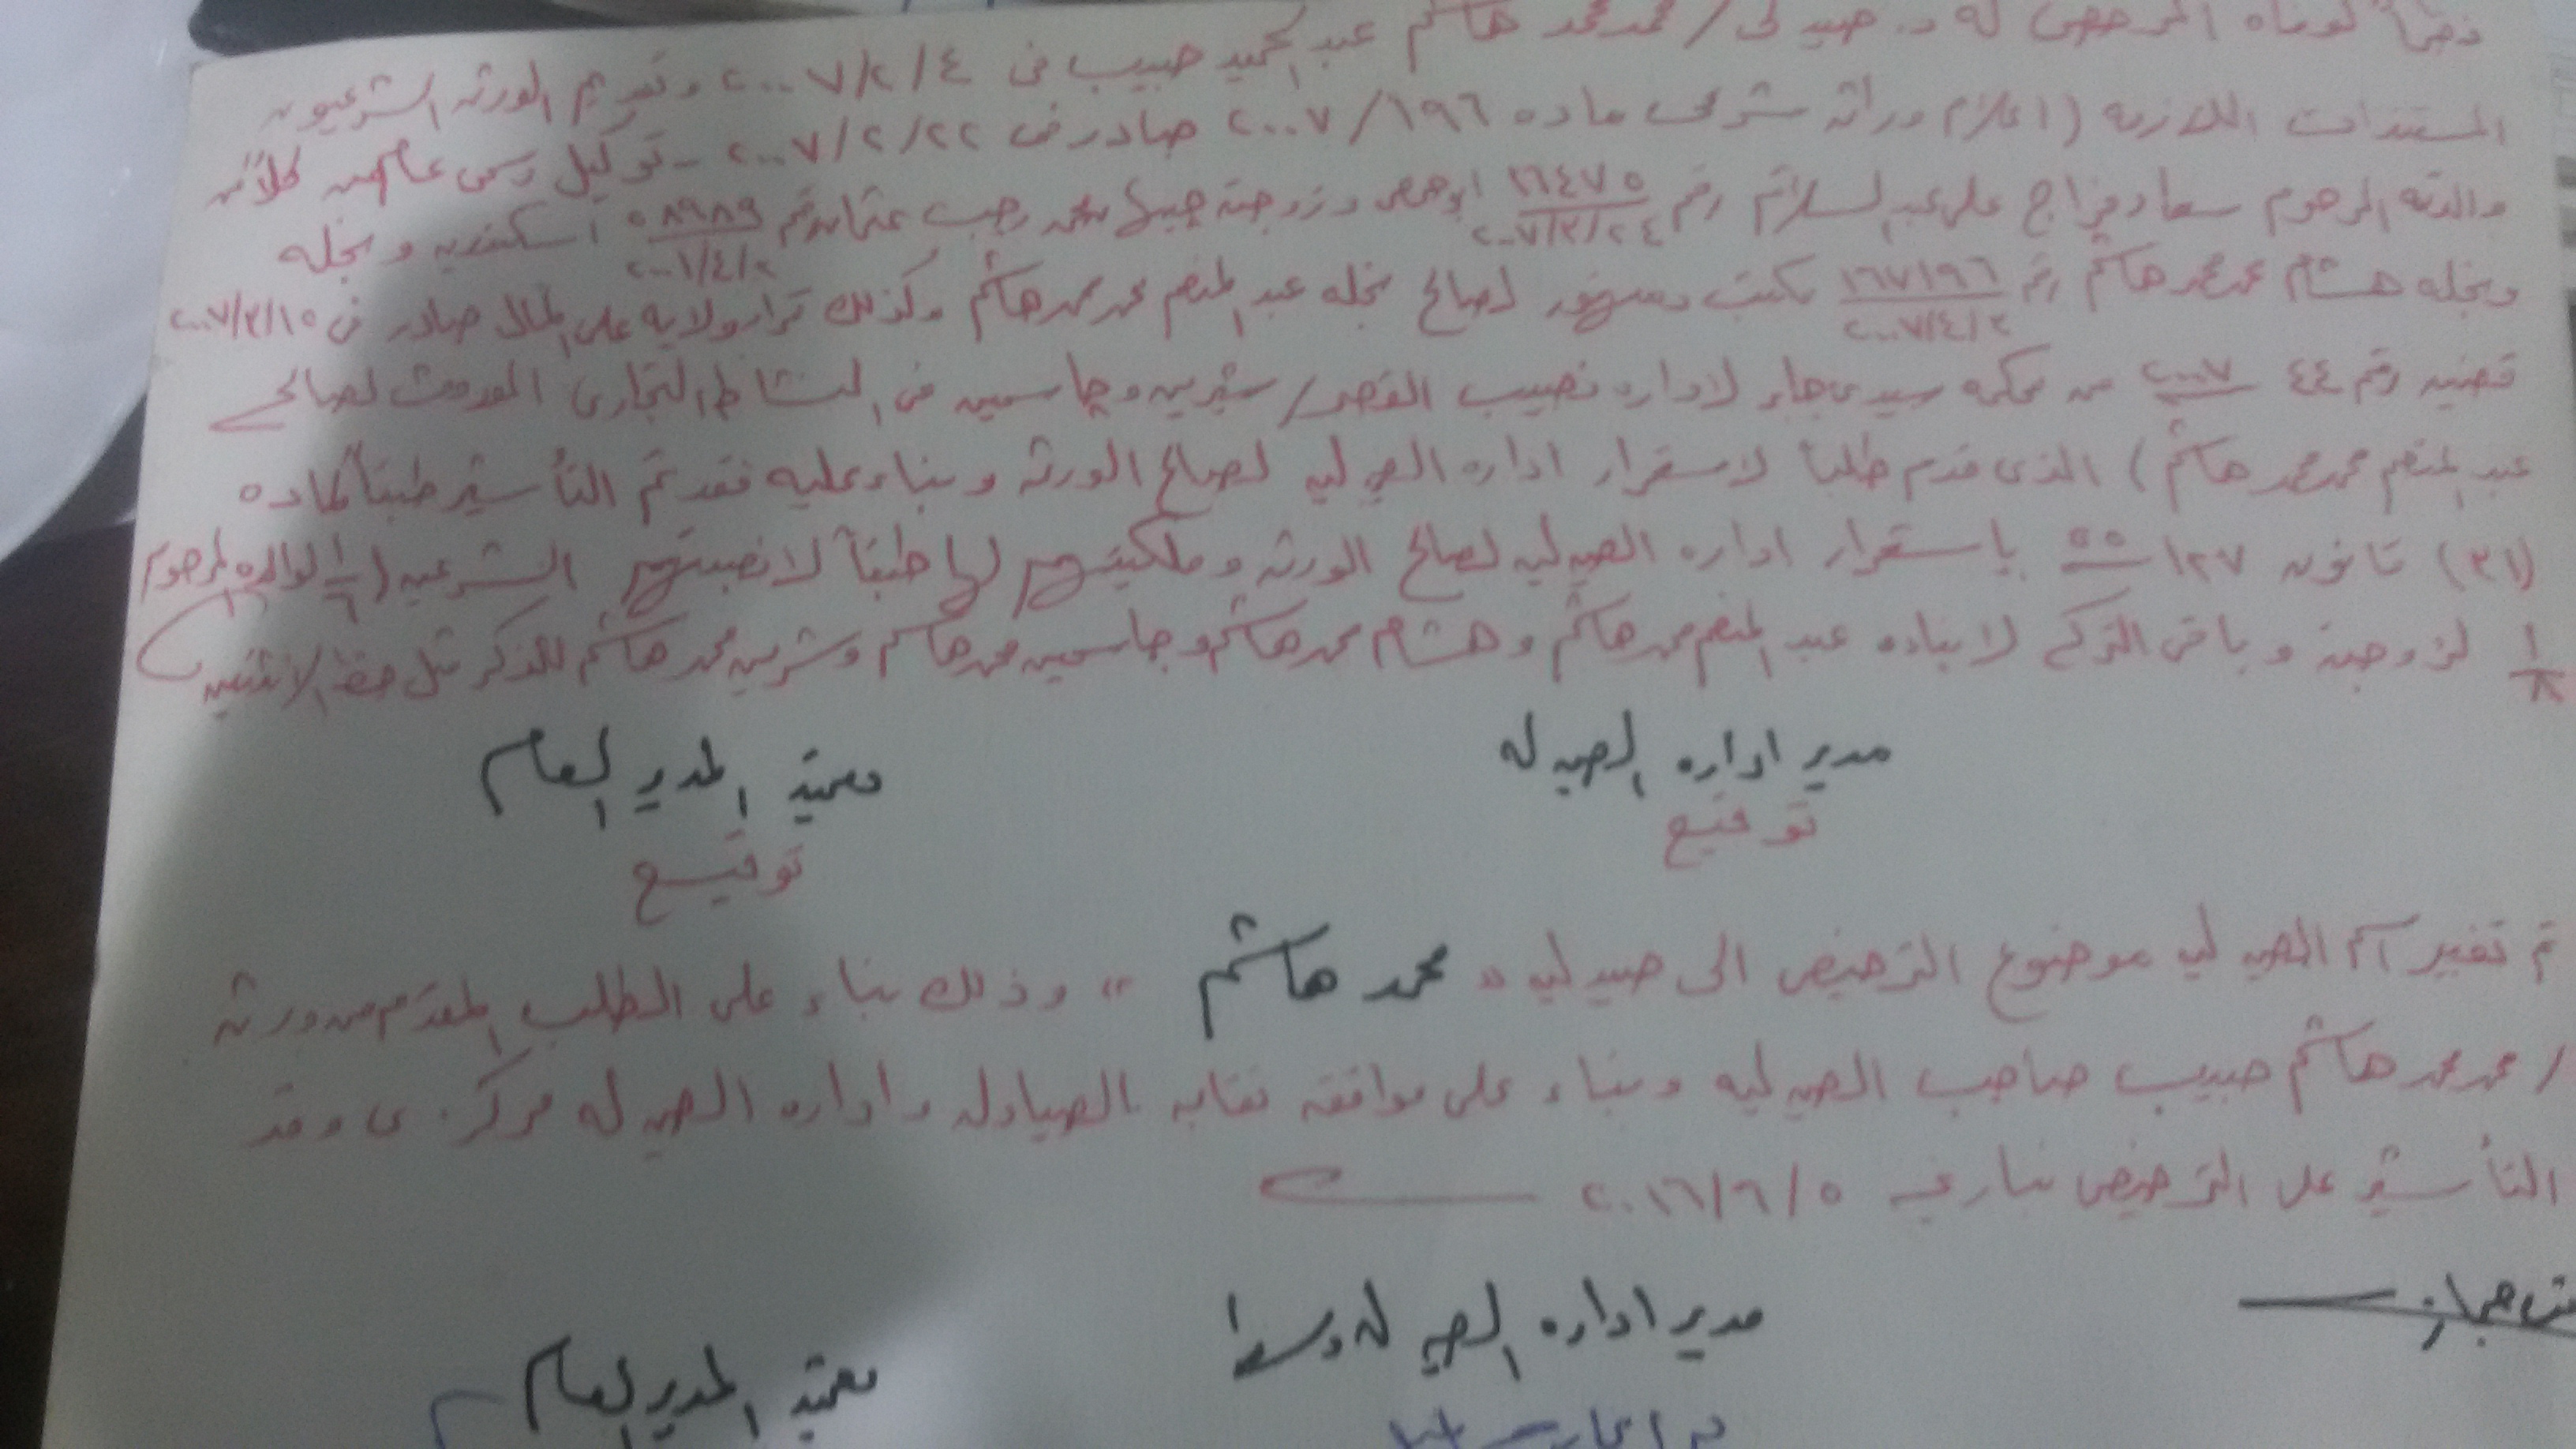 نظراً لوفاة المرخص له د. صيدلى / محمد محمد هاشم عبد الحميد حبيب فى ٤/٢/٢٠٠٧ وتقديم الورثه الشرعيون
المستندات اللازمه (اعلام وراثه شرعى ماده ١٩٦/٢٠٠٧ صادر فى ٢٢/٢/٢٠٠٧ - توكيل رسمى عام من كلاً من
والدته المرحوم سعاد فراج على عبد السلام رقم ١٦٤٧٥ / ٢٤/٢/٢٠٠٧ ابو حمص وزوجته رجب رقم ٨٩٨٩ اسكندريه ونجله
ونجله هشام محمد محمد هاشم رقم ١٦٧١٩٦ / ٢/٤/٢٠٠٧ مكتب لصالح نجله عبد المنعم محمد محمد هاشم وكذلك قرار ولايه على المال صادر فى ١٥/٣/٢٠٠٧
قضيه رقم ٤٤ / ٢٠٠٧ من محكمه سيدى جابر لاداره نصيب القصر / شيرين وجاسمين فى النشاط التجارى الموروث لصالح
عبد المنعم محمد محمد هاشم) الذى قدم طلباً لاستمرار اداره الصيدليه لصالح الورثه وبناء عليه فقد تم التأشير طبقاً لماده
(٣١) قانون ١٢٧ / ٥٥ بإستمرار اداره الصيدليه لصالح الورثه وملكيتهم لها طبقاً لانصبتهم الشرعيه (١/٦ لوالده المرحوم
١/٨ لزوجته وباقى التركه لابناءه عبد المنعم محمد هاشم وهشام محمد هاشم وجاسمين محمد هاشم وشيرين محمد هاشم للذكر مثل حظ الانثيين)
مدير اداره الصيدله
يعتمد المدير العام
توقيع
توقيع
تم تغيير اسم الصيدليه موضوع الترخيص الى صيدليه " محمد هاشم " وذلك بناء على الطلب المقدم من ورثه
/ محمد محمد هاشم حبيب صاحب الصيدليه وبناء على موافقه نقابه الصيادله واداره الصيدله مركزى وقد
التأشير على الترخيص بتاريخ ٥/٦/٢٠١٦
مدير اداره الصيدله وسط
يعتمد المدير العام